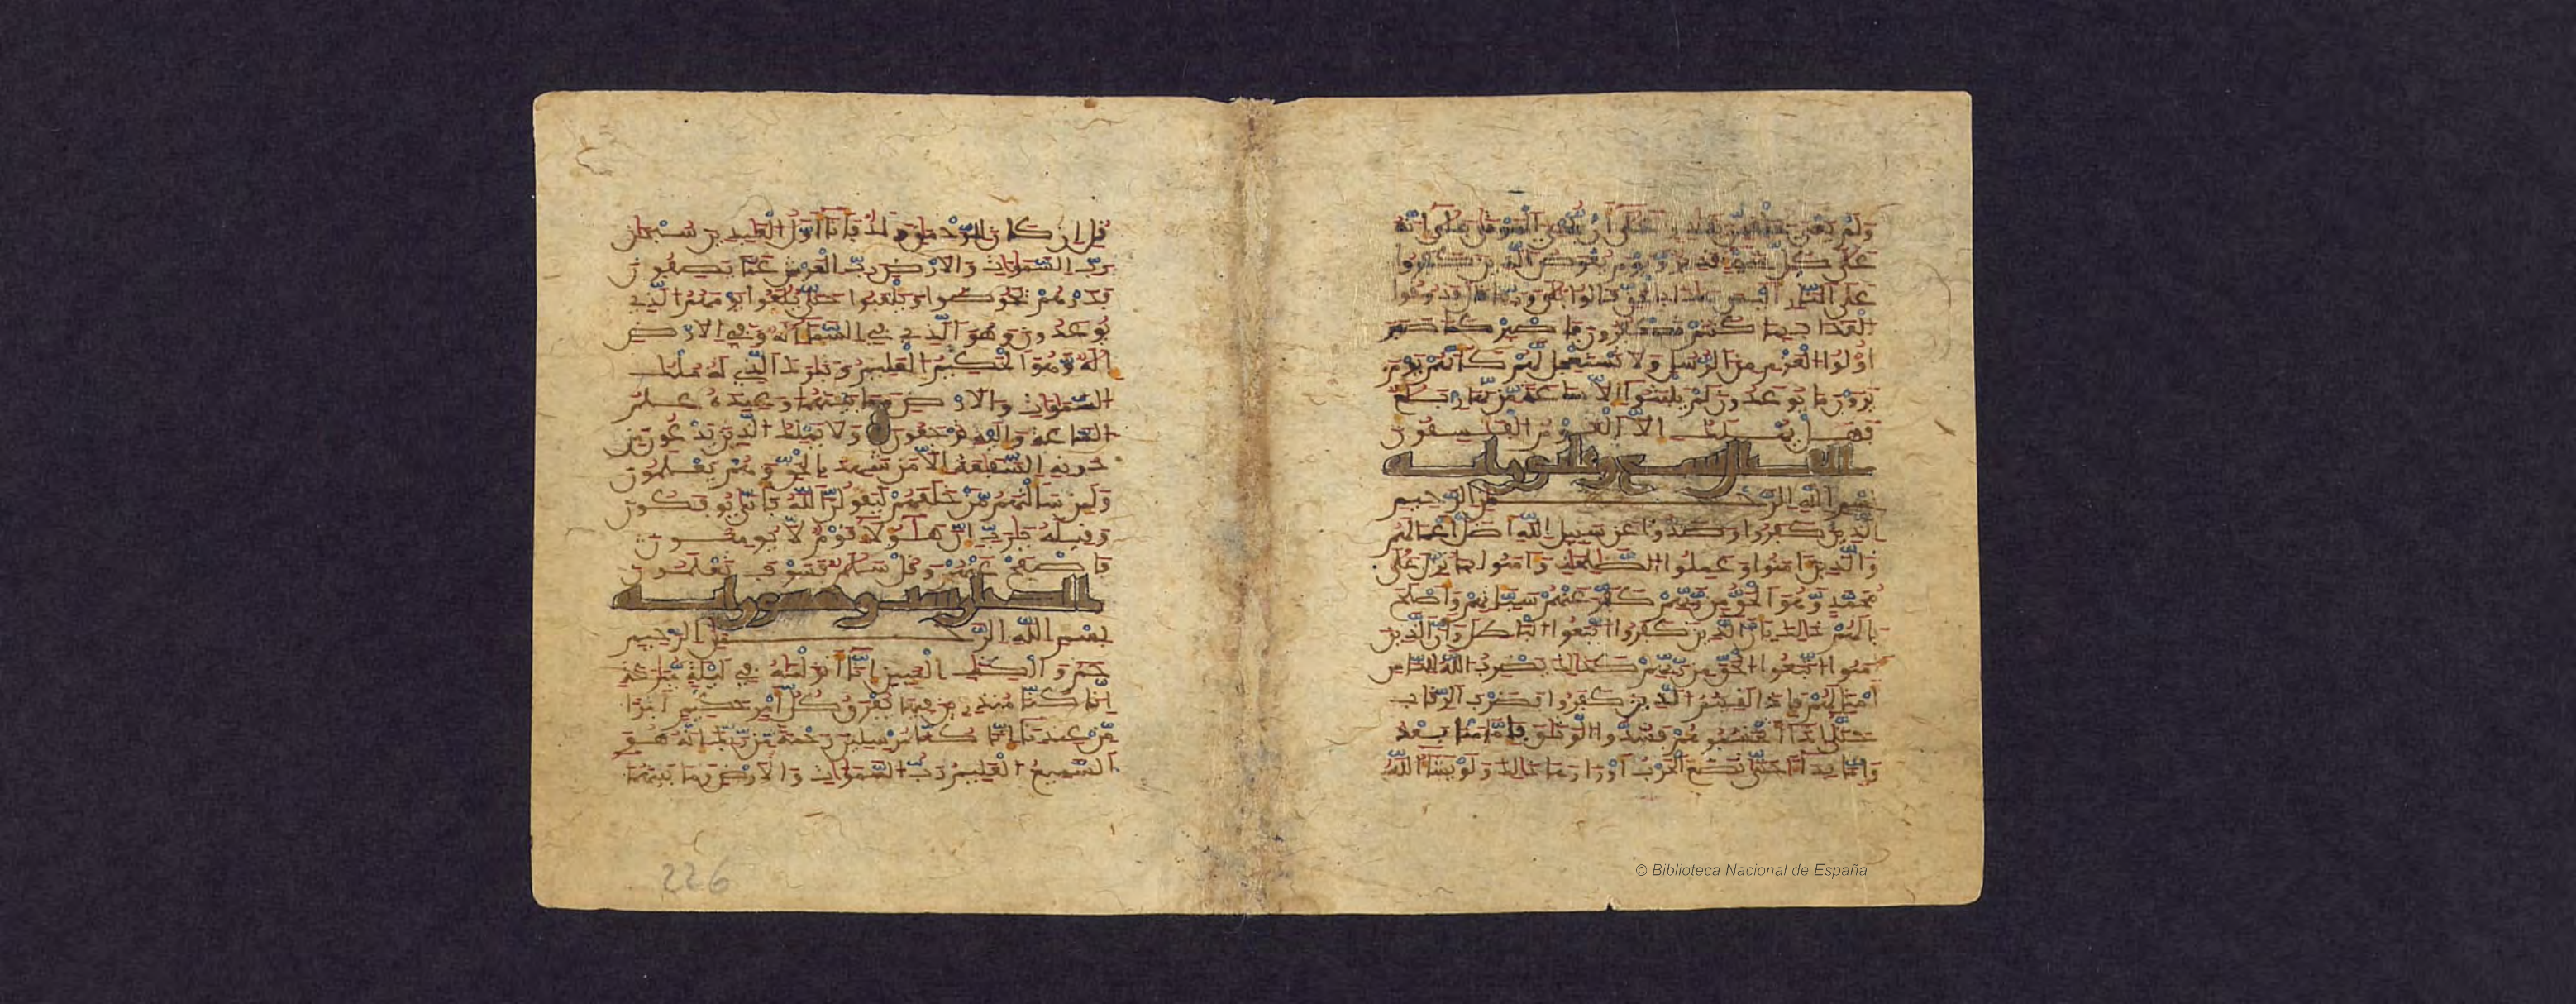 وَلَمْ يَعْيَ بِخَلْقِهِنَّ بِقَٰدِرٍ عَلَىٰٓ أَن يُحْـِۧيَ ٱلْمَوْتَىٰ بَلَىٰٓ إِنَّهُۥ
عَلَىٰ كُلِّ شَىْءٍ قَدِيرٌ وَيَوْمَ يُعْرَضُ ٱلَّذِينَ كَفَرُوا
عَلَى ٱلنَّارِ أَلَيْسَ هَٰذَا بِٱلْحَقِّ قَالُوا بَلَىٰ وَرَبِّنَا قَالَ فَذُوقُوا
ٱلْعَذَابَ بِمَا كُنتُمْ تَكْفُرُونَ فَٱصْبِرْ كَمَا صَبَرَ
أُولُوا ٱلْعَزْمِ مِنَ ٱلرُّسُلِ وَلَا تَسْتَعْجِل لَّهُمْ كَأَنَّهُمْ يَوْمَ
يَرَوْنَ مَا يُوعَدُونَ لَمْ يَلْبَثُوا إِلَّا سَاعَةً مِّن نَّهَارٍ بَلَٰغٌ
فَهَلْ يُهْلَكُ إِلَّا ٱلْقَوْمُ ٱلْفَٰسِقُونَ
بِسْمِ ٱللَّهِ ٱلرَّحْمَٰنِ ٱلرَّحِيمِ
ٱلَّذِينَ كَفَرُوا وَصَدُّوا عَن سَبِيلِ ٱللَّهِ أَضَلَّ أَعْمَٰلَهُمْ
وَٱلَّذِينَ ءَامَنُوا وَعَمِلُوا ٱلصَّٰلِحَٰتِ وَءَامَنُوا بِمَا نُزِّلَ عَلَىٰ
مُحَمَّدٍ وَهُوَ ٱلْحَقُّ مِن رَّبِّهِمْ كَفَّرَ عَنْهُمْ سَيِّـَٔاتِهِمْ وَأَصْلَحَ
بَالَهُمْ ذَٰلِكَ بِأَنَّ ٱلَّذِينَ كَفَرُوا ٱتَّبَعُوا ٱلْبَٰطِلَ وَأَنَّ ٱلَّذِينَ
ءَامَنُوا ٱتَّبَعُوا ٱلْحَقَّ مِن رَّبِّهِمْ كَذَٰلِكَ يَضْرِبُ ٱللَّهُ لِلنَّاسِ
أَمْثَٰلَهُمْ فَإِذَا لَقِيتُمُ ٱلَّذِينَ كَفَرُوا فَضَرْبَ ٱلرِّقَابِ
حَتَّىٰٓ إِذَا أَثْخَنتُمُوهُمْ فَشُدُّوا ٱلْوَثَاقَ فَإِمَّا مَنًّا بَعْدُ
وَإِمَّا فِدَآءً حَتَّىٰ تَضَعَ ٱلْحَرْبُ أَوْزَارَهَا ذَٰلِكَ وَلَوْ يَشَآءُ ٱللَّهُ
قُلْ إِن كَانَ لِلرَّحْمَٰنِ وَلَدٌ فَأَنَا أَوَّلُ ٱلْعَٰبِدِينَ سُبْحَٰنَ
رَبِّ ٱلسَّمَٰوَٰتِ وَٱلْأَرْضِ رَبِّ ٱلْعَرْشِ عَمَّا يَصِفُونَ
فَذَرْهُمْ يَخُوضُوا وَيَلْعَبُوا حَتَّىٰ يُلَٰقُوا يَوْمَهُمُ ٱلَّذِي
يُوعَدُونَ وَهُوَ ٱلَّذِي فِي ٱلسَّمَآءِ إِلَٰهٌ وَفِي ٱلْأَرْضِ
إِلَٰهٌ وَهُوَ ٱلْحَكِيمُ ٱلْعَلِيمُ وَتَبَٰرَكَ ٱلَّذِي لَهُ مُلْكُ
ٱلسَّمَٰوَٰتِ وَٱلْأَرْضِ وَمَا بَيْنَهُمَا وَعِندَهُ عِلْمُ
ٱلسَّاعَةِ وَإِلَيْهِ تُرْجَعُونَ وَلَا يَمْلِكُ ٱلَّذِينَ يَدْعُونَ مِن
دُونِهِ ٱلشَّفَٰعَةَ إِلَّا مَن شَهِدَ بِٱلْحَقِّ وَهُمْ يَعْلَمُونَ
وَلَئِن سَأَلْتَهُم مَّنْ خَلَقَهُمْ لَيَقُولُنَّ ٱللَّهُ فَأَنَّىٰ يُوفَكُونَ
وَقِيلَهُ يَٰرَبِّ إِنَّ هَٰٓؤُلَآءِ قَوْمٌ لَّا يُومِنُونَ
فَٱصْفَحْ عَنْهُمْ وَقُلْ سَلَٰمٌ فَسَوْفَ تَعْلَمُونَ
بِسْمِ ٱللَّهِ ٱلرَّحْمَٰنِ ٱلرَّحِيمِ
حم وَٱلْكِتَٰبِ ٱلْمُبِينِ إِنَّا أَنزَلْنَٰهُ فِي لَيْلَةٍ مُّبَٰرَكَةٍ
إِنَّا كُنَّا مُنذِرِينَ فِيهَا يُفْرَقُ كُلُّ أَمْرٍ حَكِيمٍ أَمْرًا
مِّنْ عِندِنَا إِنَّا كُنَّا مُرْسِلِينَ رَحْمَةً مِّن رَّبِّكَ إِنَّهُ هُوَ
ٱلسَّمِيعُ ٱلْعَلِيمُ رَبُّ ٱلسَّمَٰوَٰتِ وَٱلْأَرْضِ وَمَا بَيْنَهُمَا
226
© Biblioteca Nacional de España